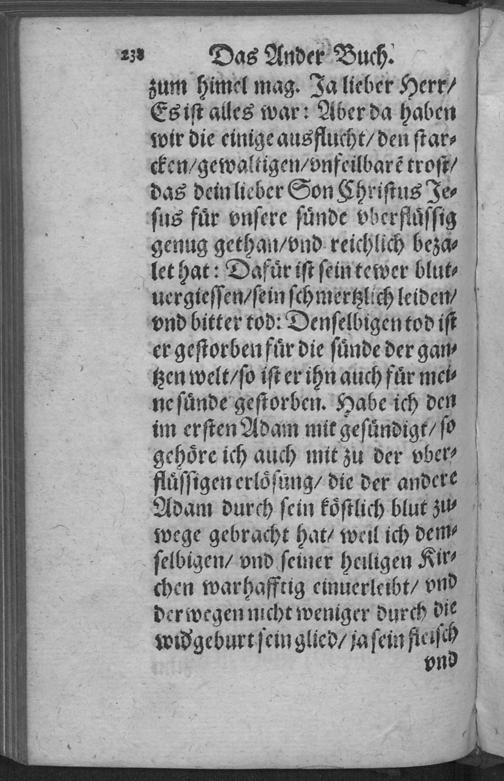 238 Das Ander Buch.
zum himel mag. Ja lieber Herr/
Es ist alles war: Aber da haben
wir die einige ausflucht/ den star-
cken/ gewaltigen/ vnfeilbarē trost/
das dein lieber Son Christus Je-
sus für vnsere sünde vberflüssig
genug gethan/ vnd reichlich beza-
let hat: Dafür ist sein tewer blut-
uergiessen/ sein schmertzlich leiden/
vnd bitter tod: Denselbigen tod ist
er gestorben für die sünde der gan-
tzen welt/ so ist er ihn auch für mei-
ne sünde gestorben. Habe ich den
im ersten Adam mit gesündigt/ so
gehöre ich auch mit zu der vber-
flüssigen erlösung/ die der andere
Adam durch sein köstlich blut zu-
wege gebracht hat/ weil ich dem-
selbigen/ vnd seiner heiligen Kir-
chen warhafftig einuerleibt/ vnd
derwegen nicht weniger durch die
widgeburt sein glied/ ja sein fleisch
vnd